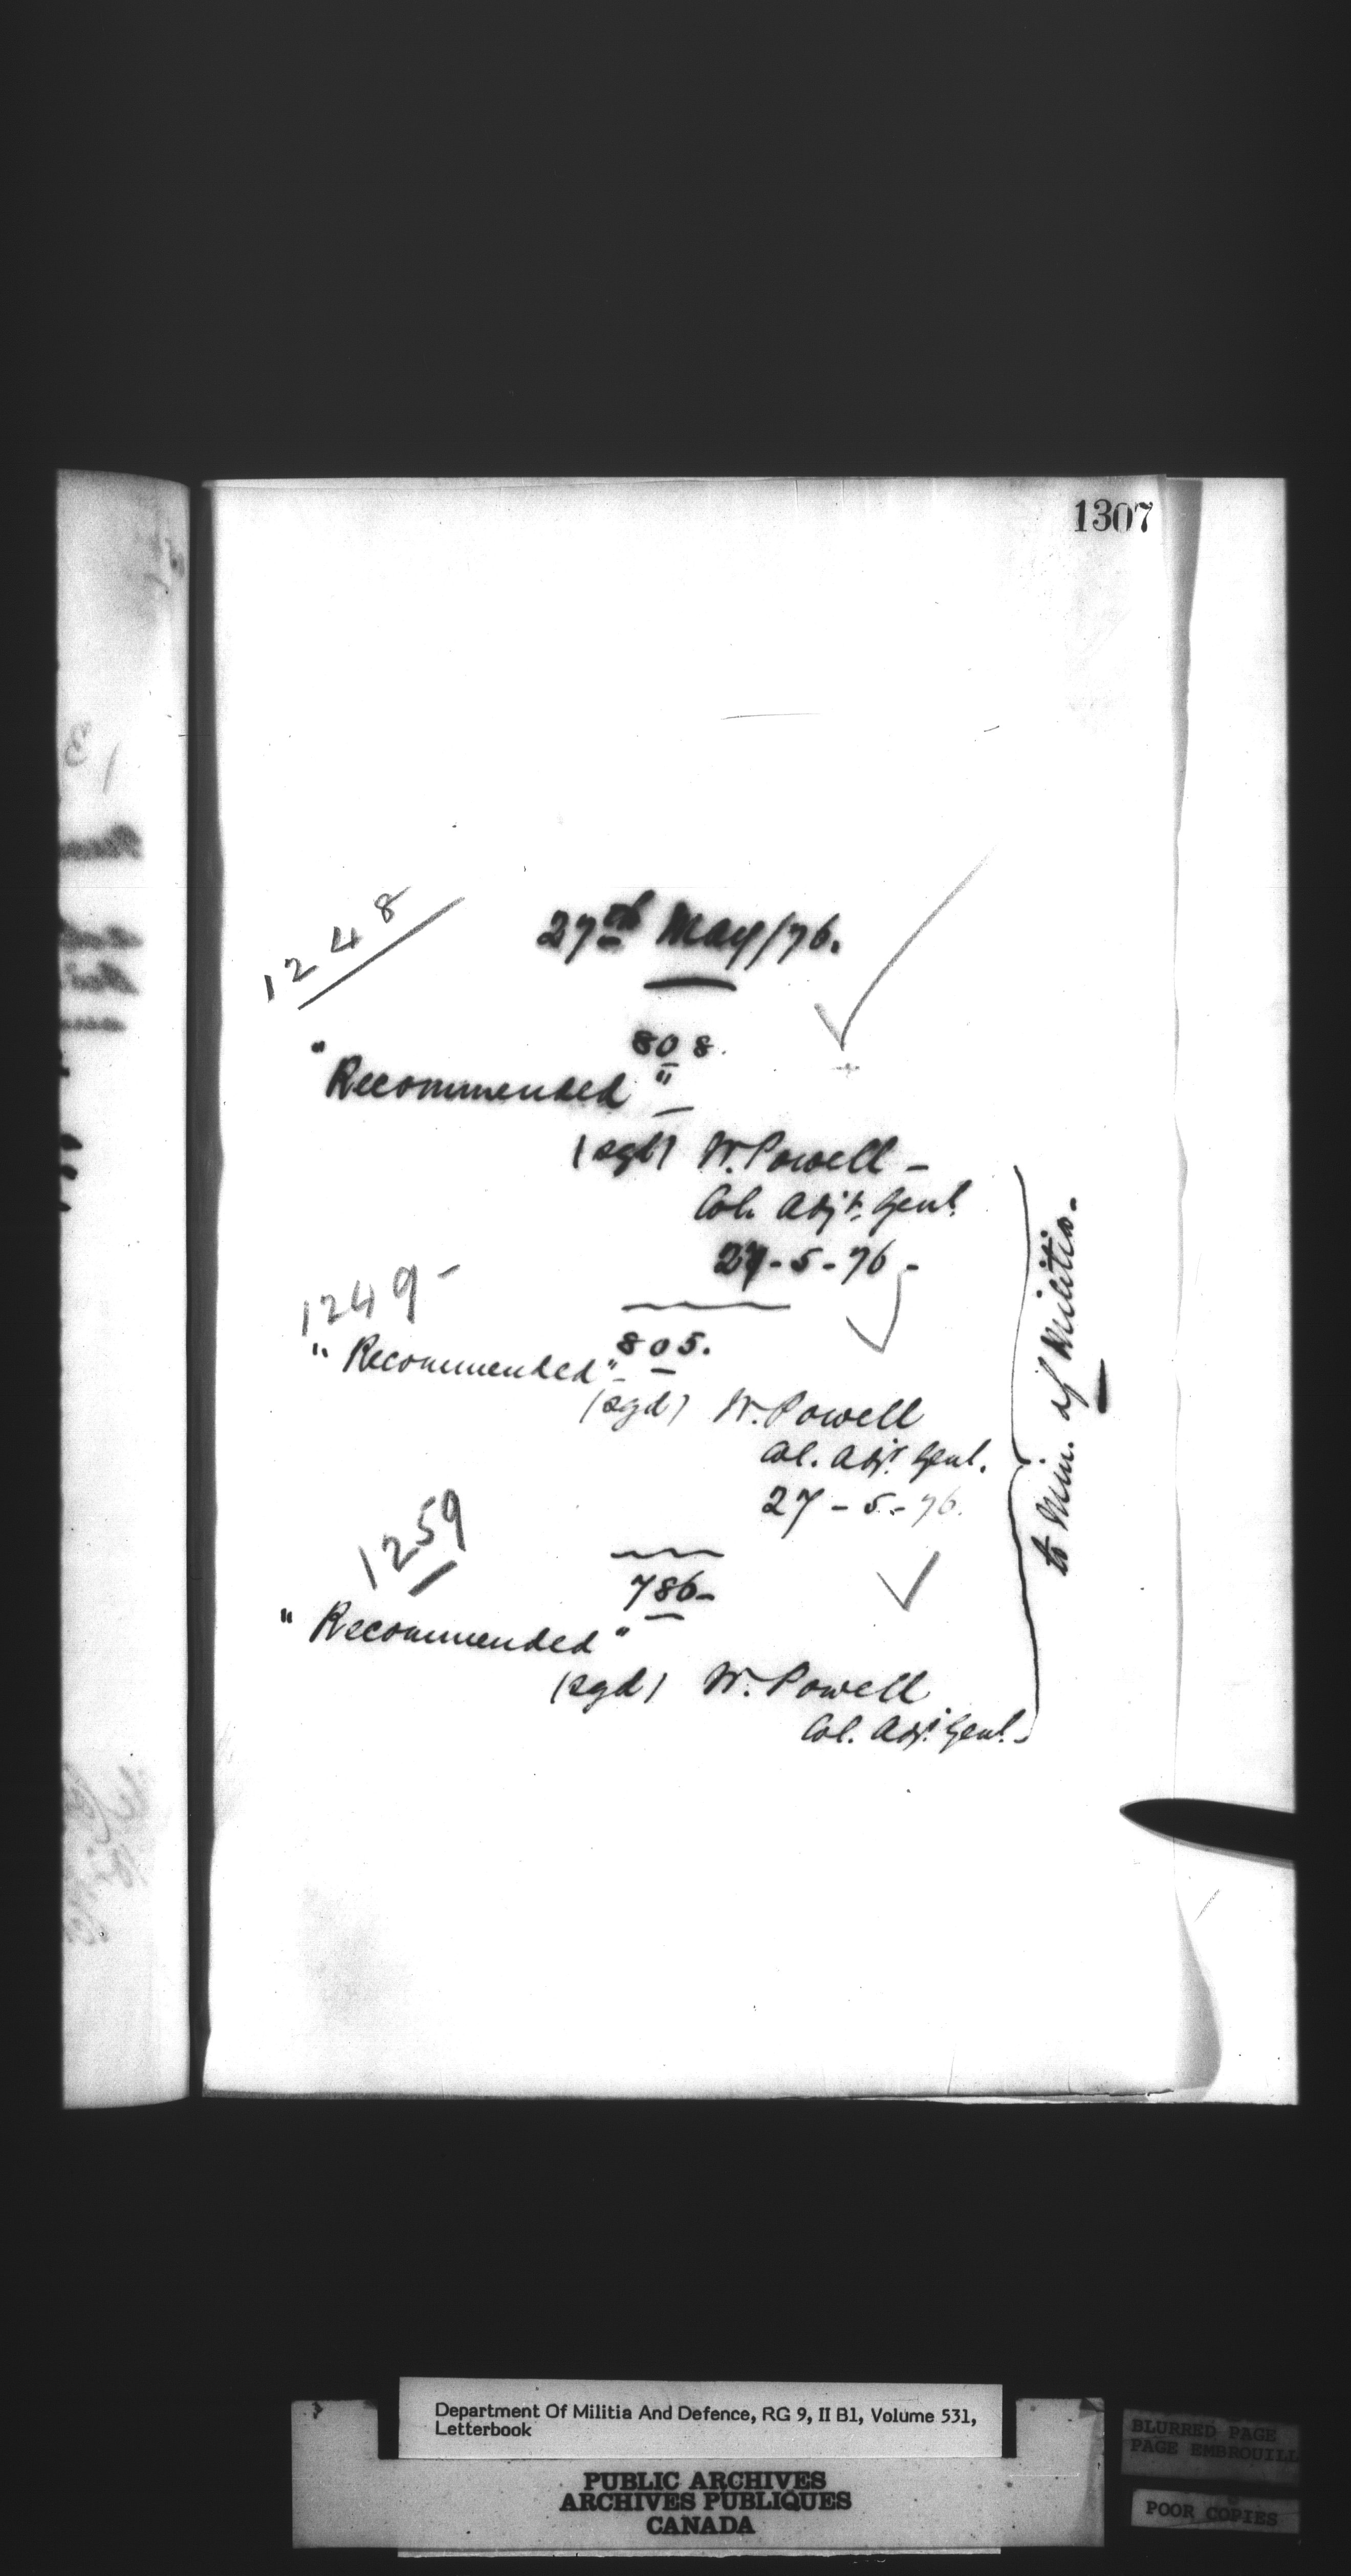 1307
1248
27th May/76.
808.
"Recommended"
(sgd) W. Powell -
Col. Adjt. Genl.
27-5-76-
1249-
805.
"Recommended"-
(sgd) W. Powell
Col. Adjt. Genl.
27-5-76.
1259
786-
"Recommended"
(sgd) W. Powell
Col. Adjt. Genl.
to Min. of Militia.
Department Of Militia And Defence, RG 9, II B1, Volume 531,
Letterbook
PUBLIC ARCHIVES
ARCHIVES PUBLIQUES
CANADA
BLURRED PAGE
PAGE EMBROUILL
POOR COPIES